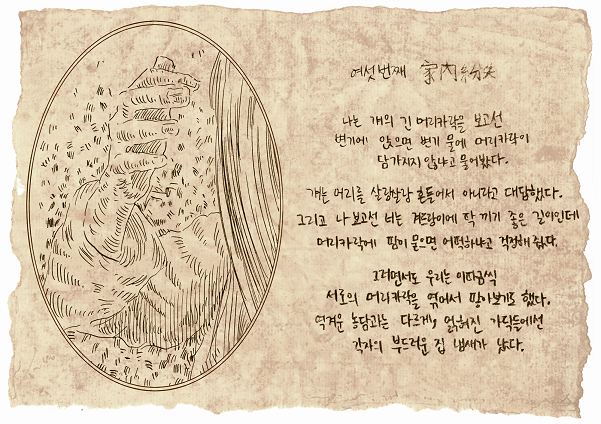 여섯번째 家內紛失
나는 걔의 긴 머리카락을 보고선
변기에 앉으면 변기 물에 머리카락이
담가지지 않냐고 물어봤다.
걔는 머리를 살랑살랑 흔들어서 아니라고 대답했다.
그리고 나보고선 너는 겨드랑이에 딱 끼기 좋은 길이인데
머리카락에 땀이 묻으면 어떡하냐고 걱정해 줬다.
그러면서도 우리는 이따금씩
서로의 머리카락을 엮어서 땋아보기도 했다.
역겨운 농담과는 다르게, 얽혀진 가닥들에선
각자의 부드러운 집 냄새가 났다.